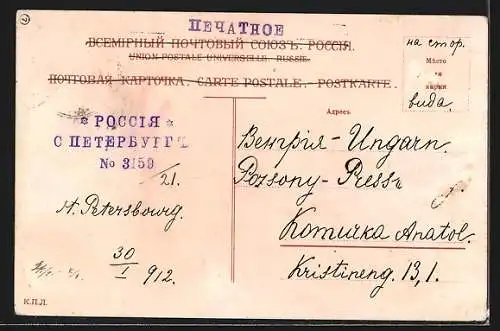 ПЕЧАТНОЕ
ВСЕМІРНЫЙ ПОЧТОВЫЙ СОЮЗЪ. РОССІЯ.
UNION POSTALE UNIVERSELLE. RUSSIE.
ПОЧТОВАЯ КАРТОЧКА. CARTE POSTALE. - POSTKARTE.
на стор.
Мѣсто
для
марки
вида.
Адресъ.
* РОССІЯ *
С ПЕТЕРБУРГЪ
No 3159
/21.
St. Petersbourg.
30/I 912.
Венгрія - Ungarn.
Pozsony - Pressb
Komurka Anatol.
Kristineng. 13, I.
К.П.Л.